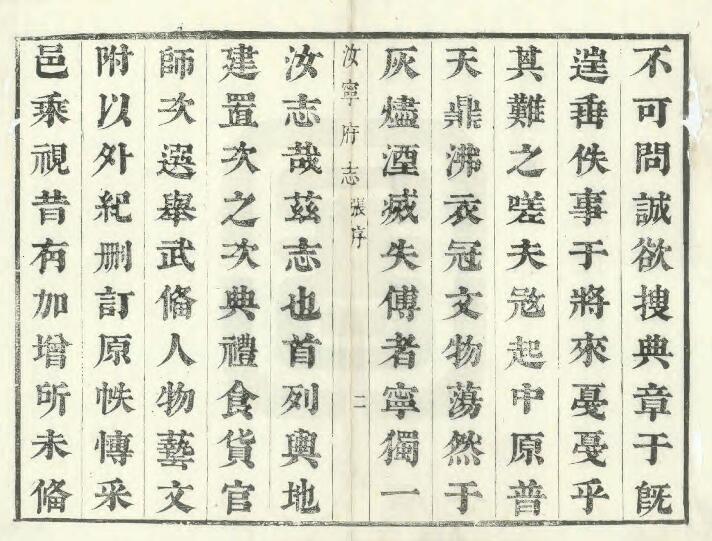 不可問誠欲搜典章于旣
逞垂佚事于將來戞戞乎
其難之嗟夫寇起中原普
天鼎沸衣冠文物蕩然于
灰燼湮滅失傳者寧獨一
汝寧府志 張序 二
汝志哉茲志也首列輿地
建置次之次典禮食貨官
師次選舉武俻人物藝文
附以外紀删訂原帙愽采
邑乘視昔有加增所未俻